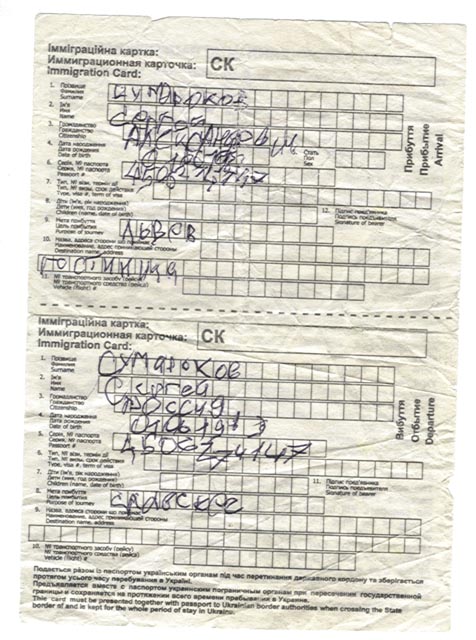 Імміграційна картка:
Иммиграционная карточка: СК
Immigration Card:
1. Прізвище
Фамилия
Surname
2. Ім'я
Имя
Name
Сергей
3. Громадянство
Гражданство
Citizenship
4. Дата народження
Дата рождения
Date of birth
Стать
Пол
Sex
Прибуття
Прибытие
Arrival
6. Серія, № паспорта
Серия, № паспорта
Passport #
Тип, № візи, термін дії
Тип, № визы, срок действия
Type, visa #, term of visa
8. Діти (ім'я, рік народження)
Дети (имя, год рождения)
Children (name, date of birth)
12. Підпис пред'явника
Подпись предъявителя
Signature of bearer
9. Мета прибуття
Цель прибытия
Purpose of journey
Львов
10. Назва, адреса сторони що приймає
Наименование, адрес принимающей стороны
Destination name, address
11. № транспортного засобу (рейсу)
№ транспортного средства (рейса)
Vehicle (flight) #
Імміграційна картка:
Иммиграционная карточка: СК
Immigration Card:
1. Прізвище
Фамилия
Surname
Сумароков
2. Ім'я
Имя
Name
Сергей
3. Громадянство
Гражданство
Citizenship
Россия
4. Дата народження
Дата рождения
Date of birth
5. Серія, № паспорта
Серия, № паспорта
Passport #
Вибуття
Отбытие
Departure
6. Тип, № візи, термін дії
Тип, № визы, срок действия
Type, visa #, term of visa
7. Діти (ім'я, рік народження)
Дети (имя, год рождения)
Children (name, date of birth)
11. Підпис пред'явника
Подпись предъявителя
Signature of bearer
8. Мета прибуття
Цель прибытия
Purpose of journey
9. Назва, адреса сторони що приймає
Наименование, адрес принимающей стороны
Destination name, address
10. № транспортного засобу (рейсу)
№ транспортного средства (рейса)
Vehicle (flight) #
Подається разом із паспортом українським органам під час перетинання державного кордону та зберігається
протягом усього часу перебування в Україні.
Предъявляется вместе с паспортом украинским пограничным органам при пересечении государственной
границы и сохраняется на протяжении всего времени пребывания в Украине.
This card must be presented together with passport to Ukrainian border authorities when crossing the State
border of and is kept for the whole period of stay in Ukraine.